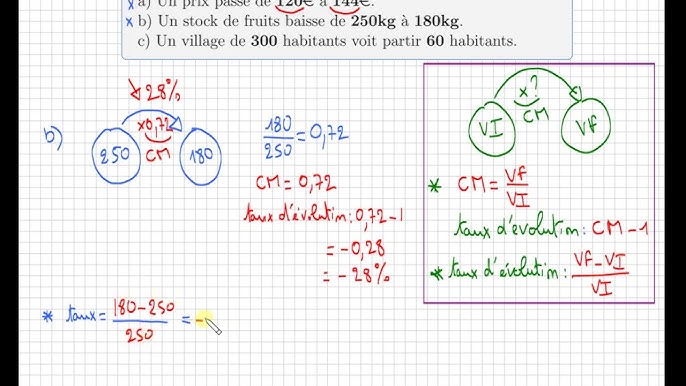 a) Un prix passe de 120€ à 144€.
x b) Un stock de fruits baisse de 250kg à 180kg.
c) Un village de 300 habitants voit partir 60 habitants.
↘28%
b) 250 x0,72 CM 180
180/250 = 0,72
CM = 0,72
taux d'évolution : 0,72 - 1
= - 0,28
= - 28%
* taux = 180 - 250 / 250 = -
x ?
VI CM Vf
* CM = Vf/VI
taux d'évolution : CM - 1
* taux d'évolution : Vf - VI / VI